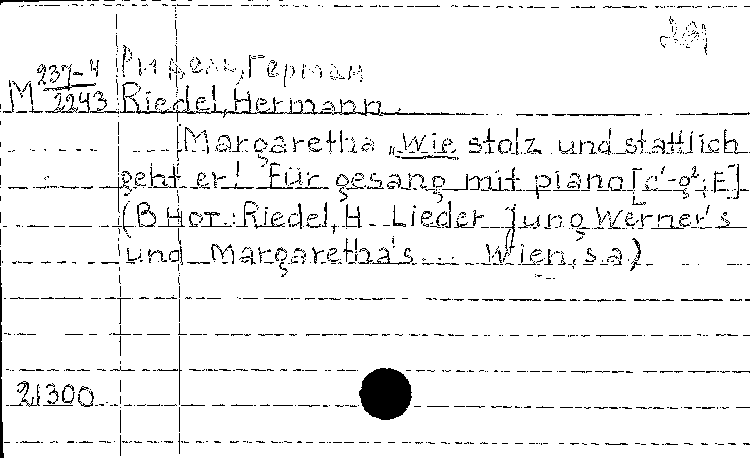 291
М 237-4/2243 Ридель, Герман
Riedel, Hermann.
Margaretha „Wie stolz und stattlich
geht er! Für gesang mit piano [c'-g²; E].
(В нот.: Riedel, H. Lieder jung Werner's
und Margaretha's... Wien, s.a.)
21300